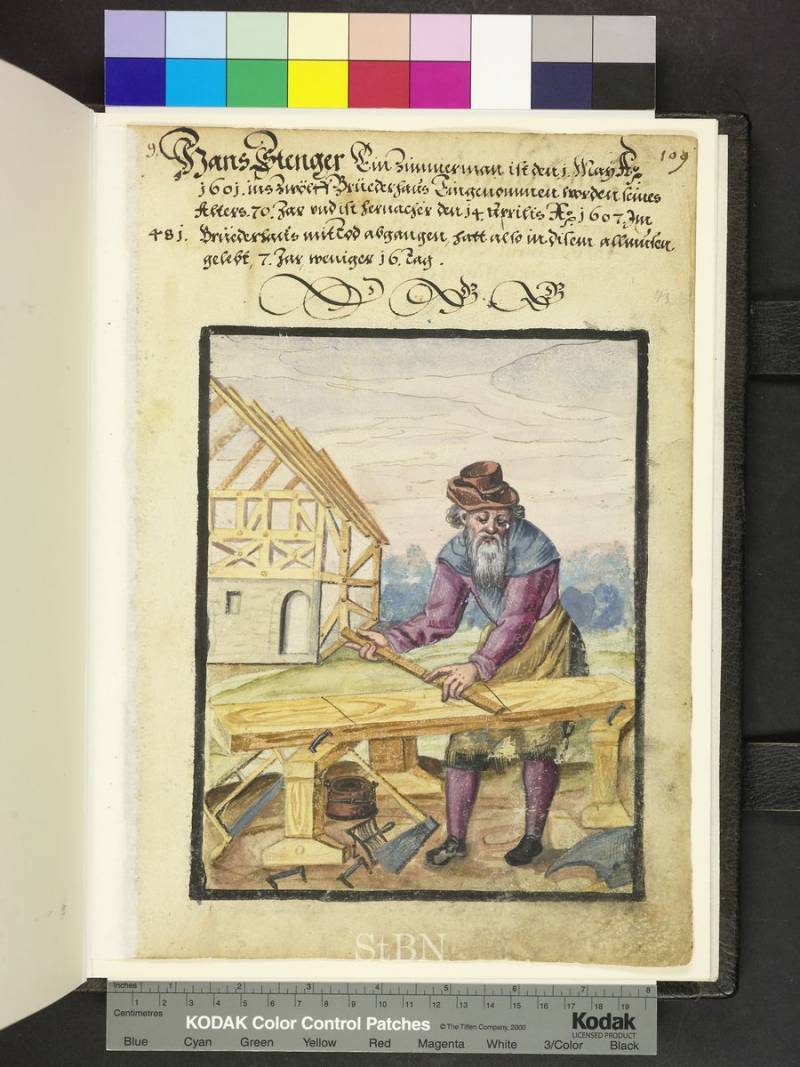 9.
109
Hans Stenger Ein Zimmerman ist den 1. May Aͦ
1601. ins zwölff Brüederhaus Eingenommen worden seines
Alters. 70. Jar vnd ist hernacher den 14 Aprilis Aͦ 1607. Im
481. Brüederhaus mit tod abgangen, hatt also in disem allmusen
gelebt, 7. Jar, weniger 16. tag.
StBN
Inches 1 2 3 4 5 6 7 8
Centimetres 1 2 3 4 5 6 7 8 9 10 11 12 13 14 15 16 17 18 19
KODAK Color Control Patches © The Tiffen Company, 2000 Kodak
LICENSED PRODUCT
Blue Cyan Green Yellow Red Magenta White 3/Color Black